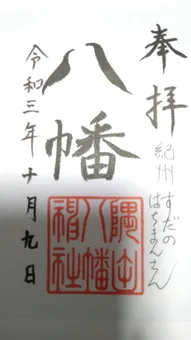 奉拝
紀州 すだの
はちまんさん
八幡
隅田
八幡
神社
令和三年十月九日